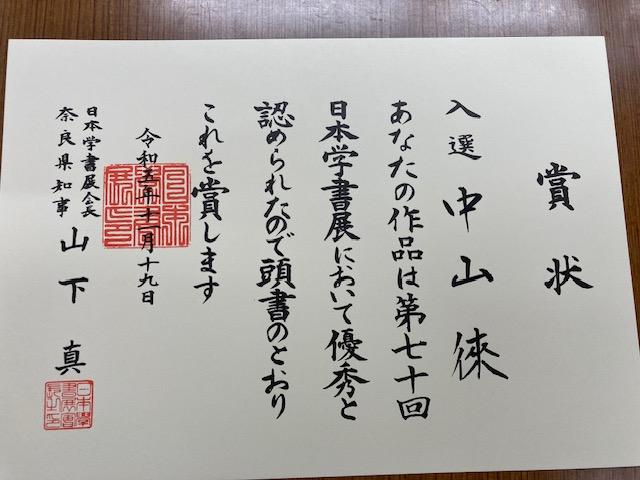 賞状
入選 中山徠
あなたの作品は第七十回
日本学書展において優秀と
認められたので頭書のとおり
これを賞します
令和五年十一月十九日
日本学書展会長
奈良県知事 山下真